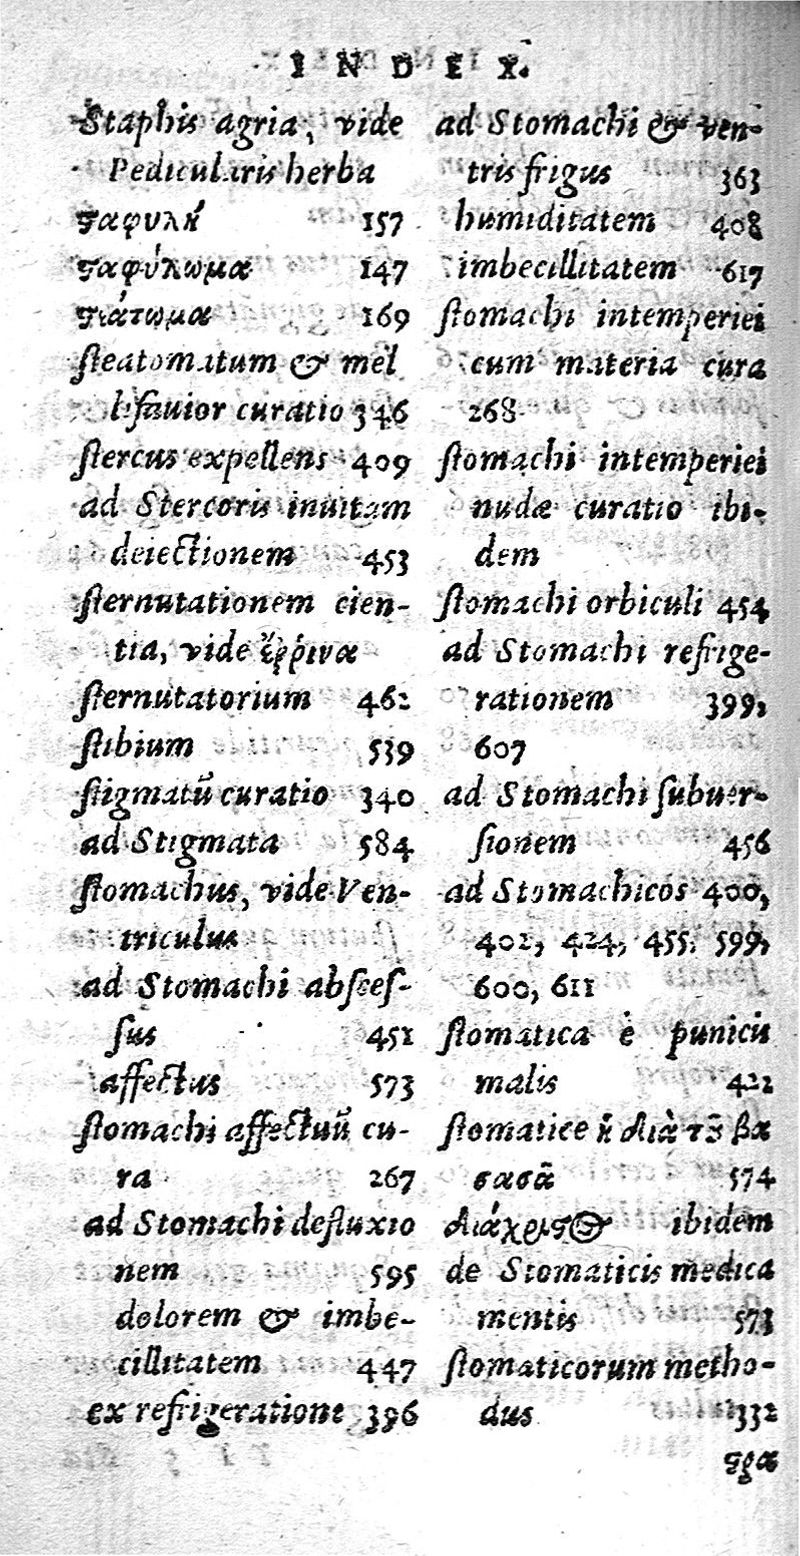 INDEX.
Staphis agria, vide
Pedicularis herba
ϛαφυλή 157
ϛαφύλωμα 147
ϛιάτωμα 169
ſteatomatum & mel
lifauior curatio 346
ſtercus expellens 409
ad Stercoris inuitam
deiectionem 453
ſternutationem cien-
tia, vide ἔῤῥινα
ſternutatorium 462
ſtibium 539
ſtigmatū curatio 340
ad Stigmata 584
ſtomachus, vide Ven-
triculus
ad Stomachi abſceſ-
ſus 451
affectus 573
ſtomachi affectuū cu-
ra 267
ad Stomachi defluxio
nem 595
dolorem & imbe-
cillitatem 447
ex refrigeratione 396
ad Stomachi & ven-
tris frigus 363
humiditatem 408
imbecillitatem 617
ſtomachi intemperiei
cum materia cura
268
ſtomachi intemperiei
nudæ curatio ibi-
dem
ſtomachi orbiculi 454
ad Stomachi refrige-
rationem 399,
607
ad Stomachi ſubuer-
ſionem 456
ad Stomachicos 400,
402, 424, 455. 599,
600, 611
ſtomatica è punicis
malis 422
ſtomatice ἡ διὰ τȣ͂ βα
σασᾶ 574
διάχριϛος ibidem
de Stomaticis medica
mentis 573
ſtomaticorum metho-
dus 332